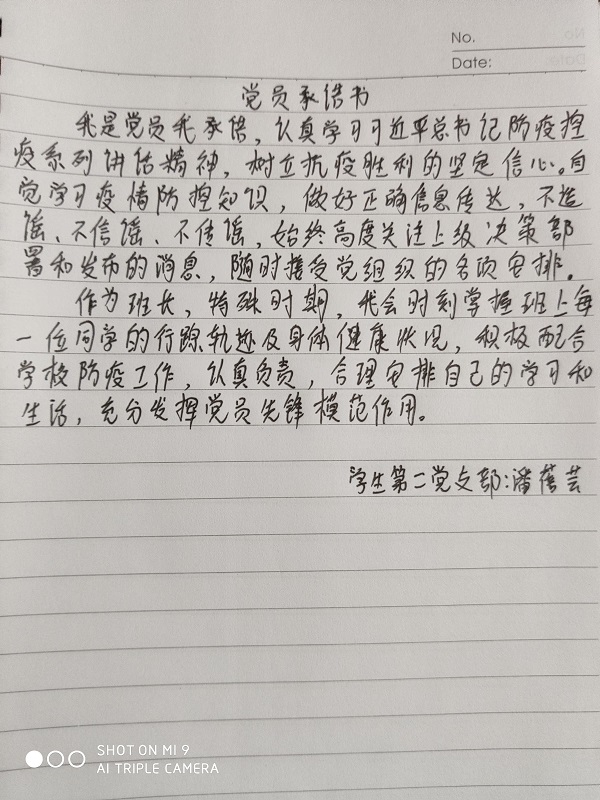 No.
Date:
党员承诺书
我是党员我承诺，认真学习习近平总书记防疫控
疫系列讲话精神，树立抗疫胜利的坚定信心。自
觉学习疫情防控知识，做好正确信息传达，不造
谣、不信谣、不传谣，始终高度关注上级决策部
署和发布的消息，随时接受党组织的各项安排。
作为班长，特殊时期，我会时刻掌握班上每
一位同学的行踪轨迹及身体健康状况，积极配合
学校防疫工作，认真负责，合理安排自己的学习和
生活，充分发挥党员先锋模范作用。
学生第二党支部：潘蓓芸
SHOT ON MI 9
AI TRIPLE CAMERA